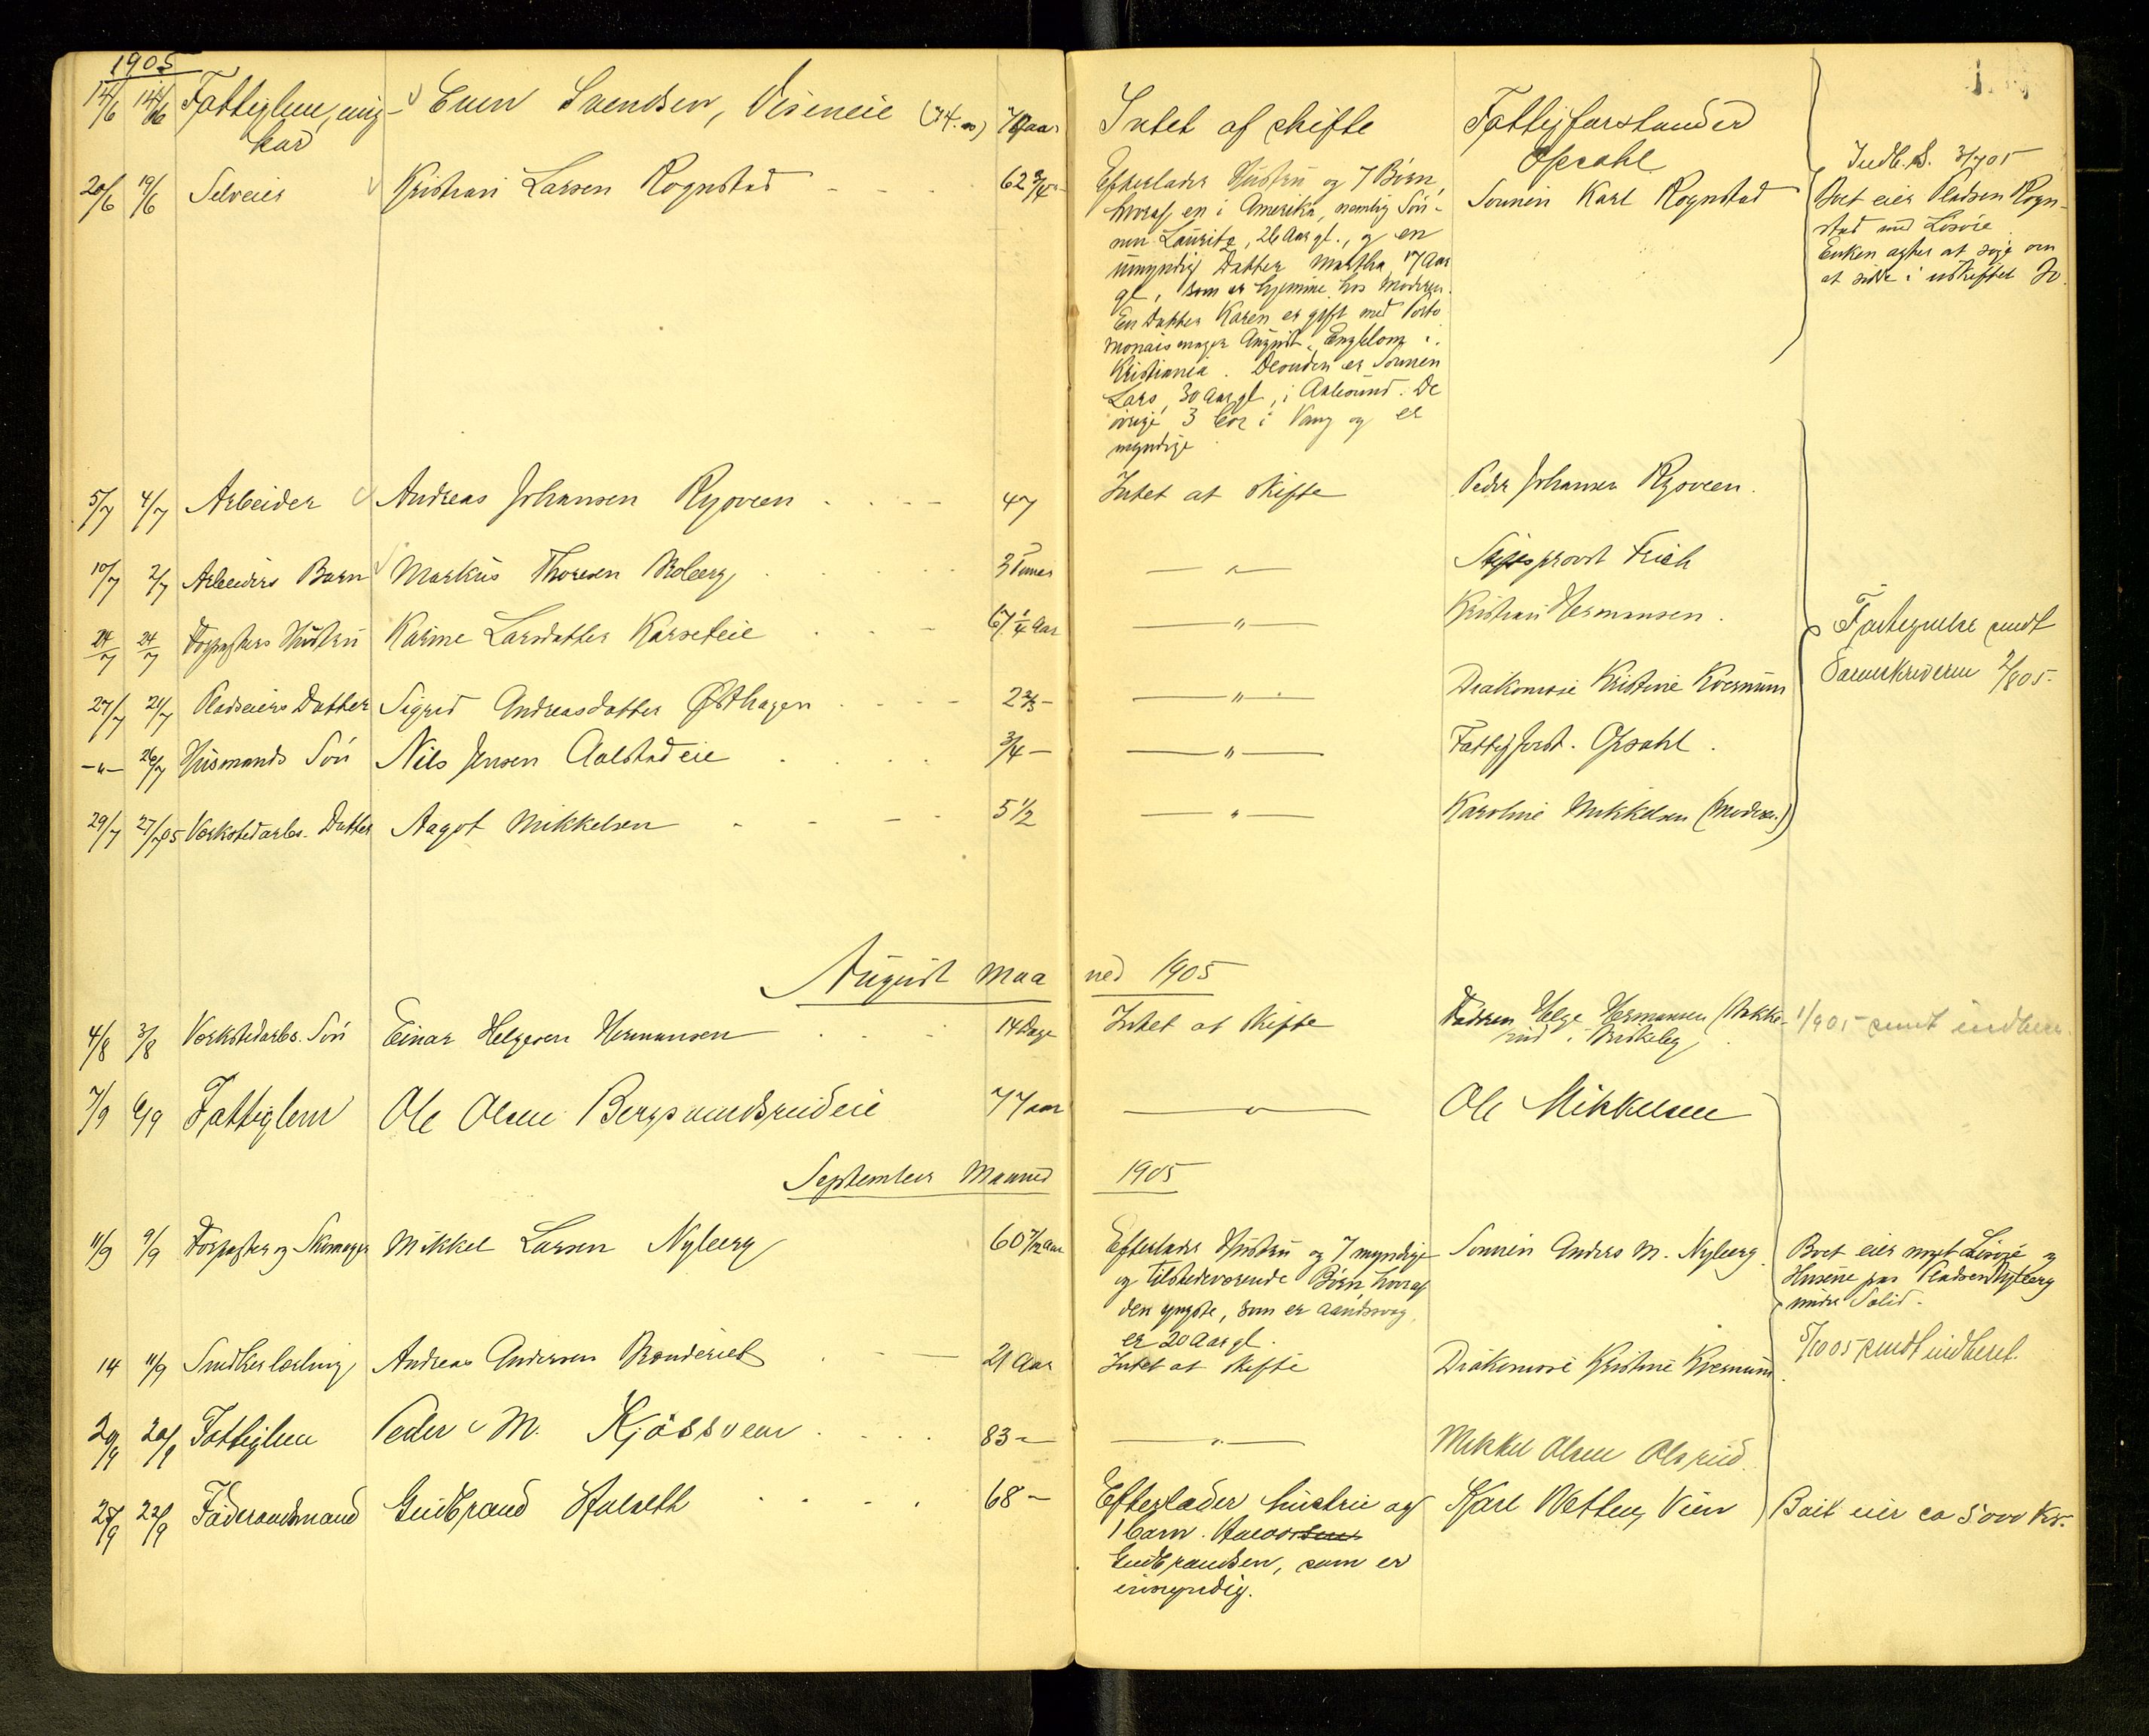 1905
14/6 14/6 Fattiglem, ung- Even Svendsen, Viseneie (74. 
kar
Intet af skifte Fattigforstander
Opsahl
20/6 19/6 Selveier Kristian Larsen Rognstad 62 3/4
Efterlader Hustru og 7 Børn,
hvoraf en i Amerika, nemlig Søn-
nen Lauritz, 26 Aar gl., og en
umyndig Datter Martha 17 Aar
gl., som er hjemme hos Moderen.
En Datter Karen er gift med Porte
monaismager August Engblom i
Kristiania. Desuden er Sønnen
Lars, 30 Aar gl., i Aalesund. De
øvrige 3 bor i Vang og er
myndige
Sønnen Karl Rognstad
Indb. S. 3/7 05
Boet eier Pladsen Rogn-
stad med Løsøre
Enken agter at søge om
at sidde i uskiftet Bo.
5/7 4/7 Arbeider Andreas Johansen Ryoveen 47 Intet at skifte Peder Johansen Ryoveen.
10/7 2/7 Arbeiders Barn Markus Thoresen Roberg 3 Timer — " — Stiftsprovst Frich
24/7 24/7 Forpagters Hustru Karine Larsdatter Karseteie 67 1/4 Aar — " — Kristian Hermansen.
27/7 24/7 Pladseiers Datter Sigrid Andreasdatter Østhagen 2 2/3 — — " — Diakonisse Kristine Kvernum
— " — 26/7 Husmands Søn Nils Jensen Aalstadeie 3/4 — — " — Fattigforst. Opsahl.
29/7 27/7 05 Værkstedarbr. Datter Aagot Mikkelsen 5 1/2 — " — Karoline Mikkelsen (Moderen)
Fortegnelse sendt
Sorenskriveren 2/8 05.
August Maaned 1905
4/8 3/8 Værkstedarbr. Søn Einar Helgesen Hermansen 14 Dage Intet at skifte Faderen Helge Hermansen (Bække-
lund i Briskeby
1/9 05 sendt indber.
7/9 6/9 Fattiglem Ole Olsen Bergsundsrudeie 77 aar — " — Ole Mikkelsen
September Maaned 1905
11/9 9/9 Forpagter og Skomager Mikkel Larsen Nyberg 60 7/12 Aar
Efterlader Hustru og 7 myndige
og tilstedeværende Børn, hvoraf
den yngste, som er aandssvag
er 20 Aar gl.
Sønnen Anders M. Nyberg.
Boet eier noget Løsøre og
Husene paa Pladsen Nyberg
under Solid.
14 11/9 Snedkerlærling Andreas Andersen Brænderiet 21 Aar Intet at skifte Diakonisse Kristine Kvernum
5/10 05 sendt indberet.
20/9 20/9 Fattiglem Peder M. Kjøssveen 83 — — " — Mikkel Olsen Olsrud.
25/9 22/9 Føderaadsmand Gudbrand Hulseth 68 —
Efterlader hustru og
1 barn.
Gudbrandsen, som er
umyndig.
Karl Vetten, Vien
Boet eier ca 5000 Kr.